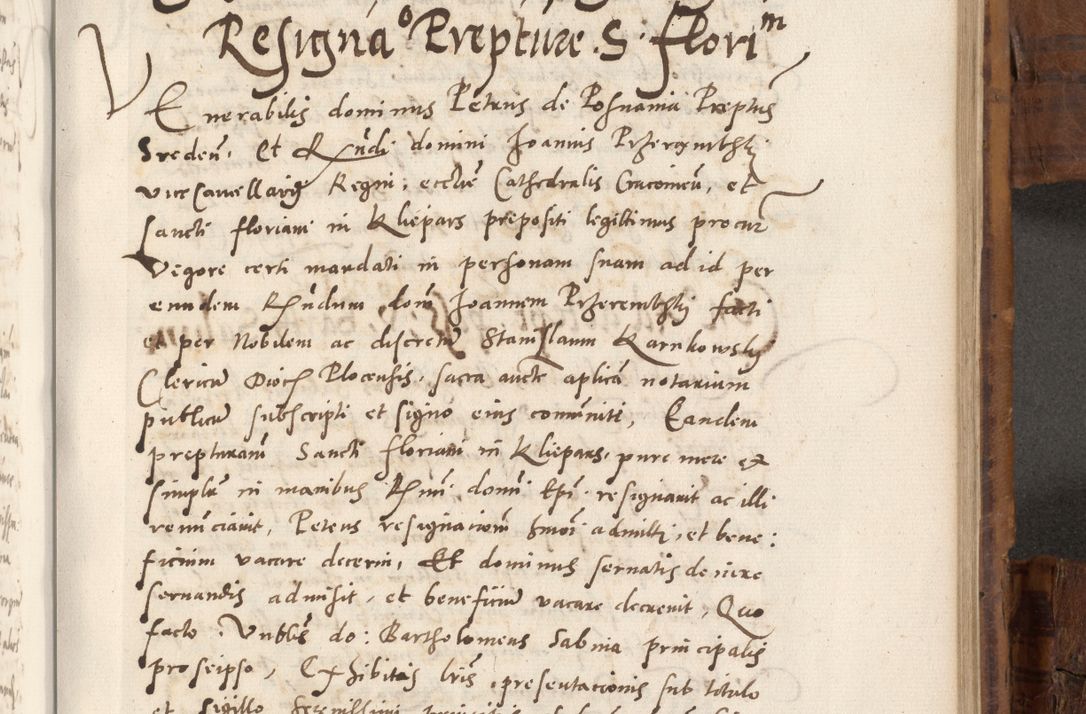 Resigna&#x1D52; Prepture. S. floriᵐ
VEnerabilis dominus Petrus de Posnania Preptus
Sreden̄. Et Rn̄di domini Joannis Przerembski
vicecancellarij Regni, ecclie Cathedralis Cracovien̄, et
Sancti floriani in Klieparz prepositi legittimus procur̄
Vegore certi mandati in personam suam ad id per
eundem Rn̄dum dom̄ Joannem Przerembski facti
et per Nobilem ac discretū Stanislaum Karnkowsky
Clericū Dioc̄ Plocensis. sacra aucte aplica notarium
publicū subscripti et signo eius com̄uniti, Eandem
prepturam Sancti floriani in Klieparz, pure mere et
simplr̄ in manibus Rm̄i domī Epī resignavit ac illi
renūciavit, Petens resignacionē hmōi admitti, et bene:
ficium vacare decerni, Et dominus servatis de iure
servandis admisit, et beneficiū vacare decrevit, Quo
facto, Vn̄blis do: Bartholomeus Sabina principalis
pro seipso, Exhibitis lr̄is presentacionis sub titulo
et sigillo Serenissimi